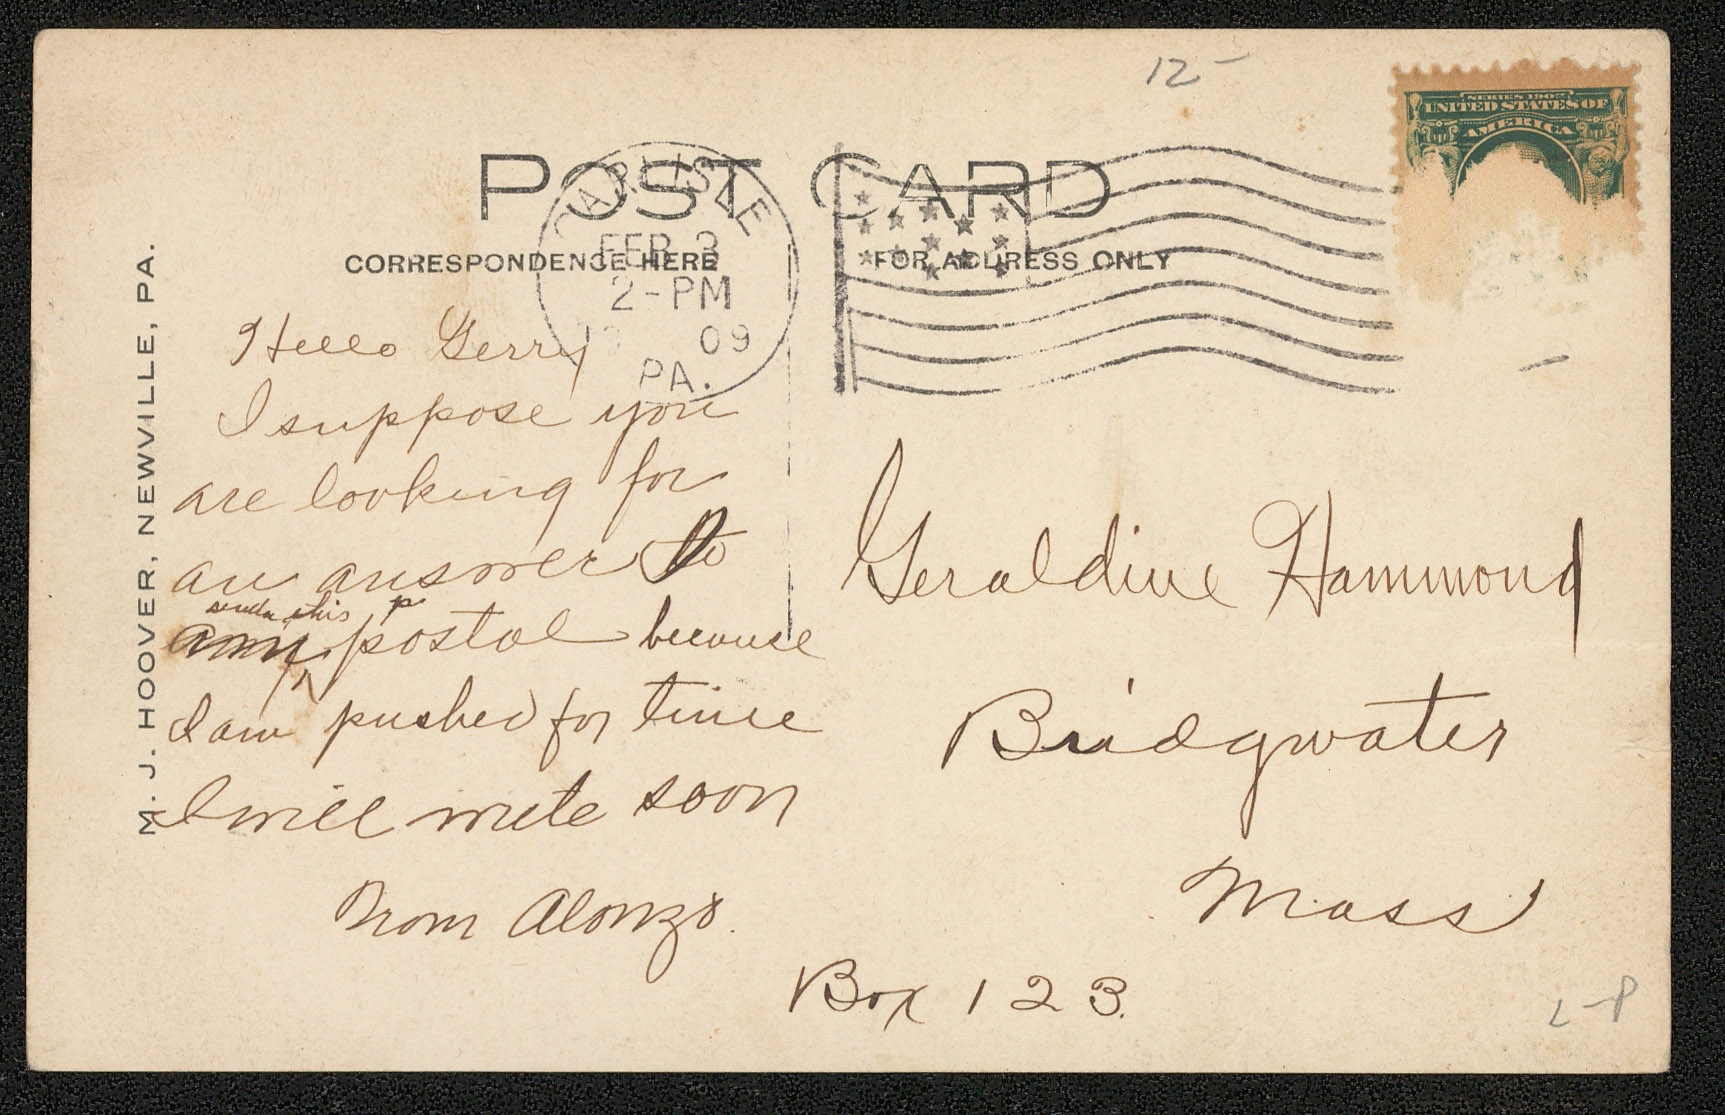 12-
SERIES 1902
UNITED STATES OF
AMERICA
POST CARD
CARLISLE
FEB 3
2-PM
09
PA.
CORRESPONDENCE HERE
FOR ADDRESS ONLY
M. J. HOOVER, NEWVILLE, PA.
Hello Gerry
I suppose you
are looking for
an answer to
this p
postal because
I am pushed for time
I will write soon
From Alonzo.
Geraldine Hammond
Bridgwater
Mass
Box 123.
L-P